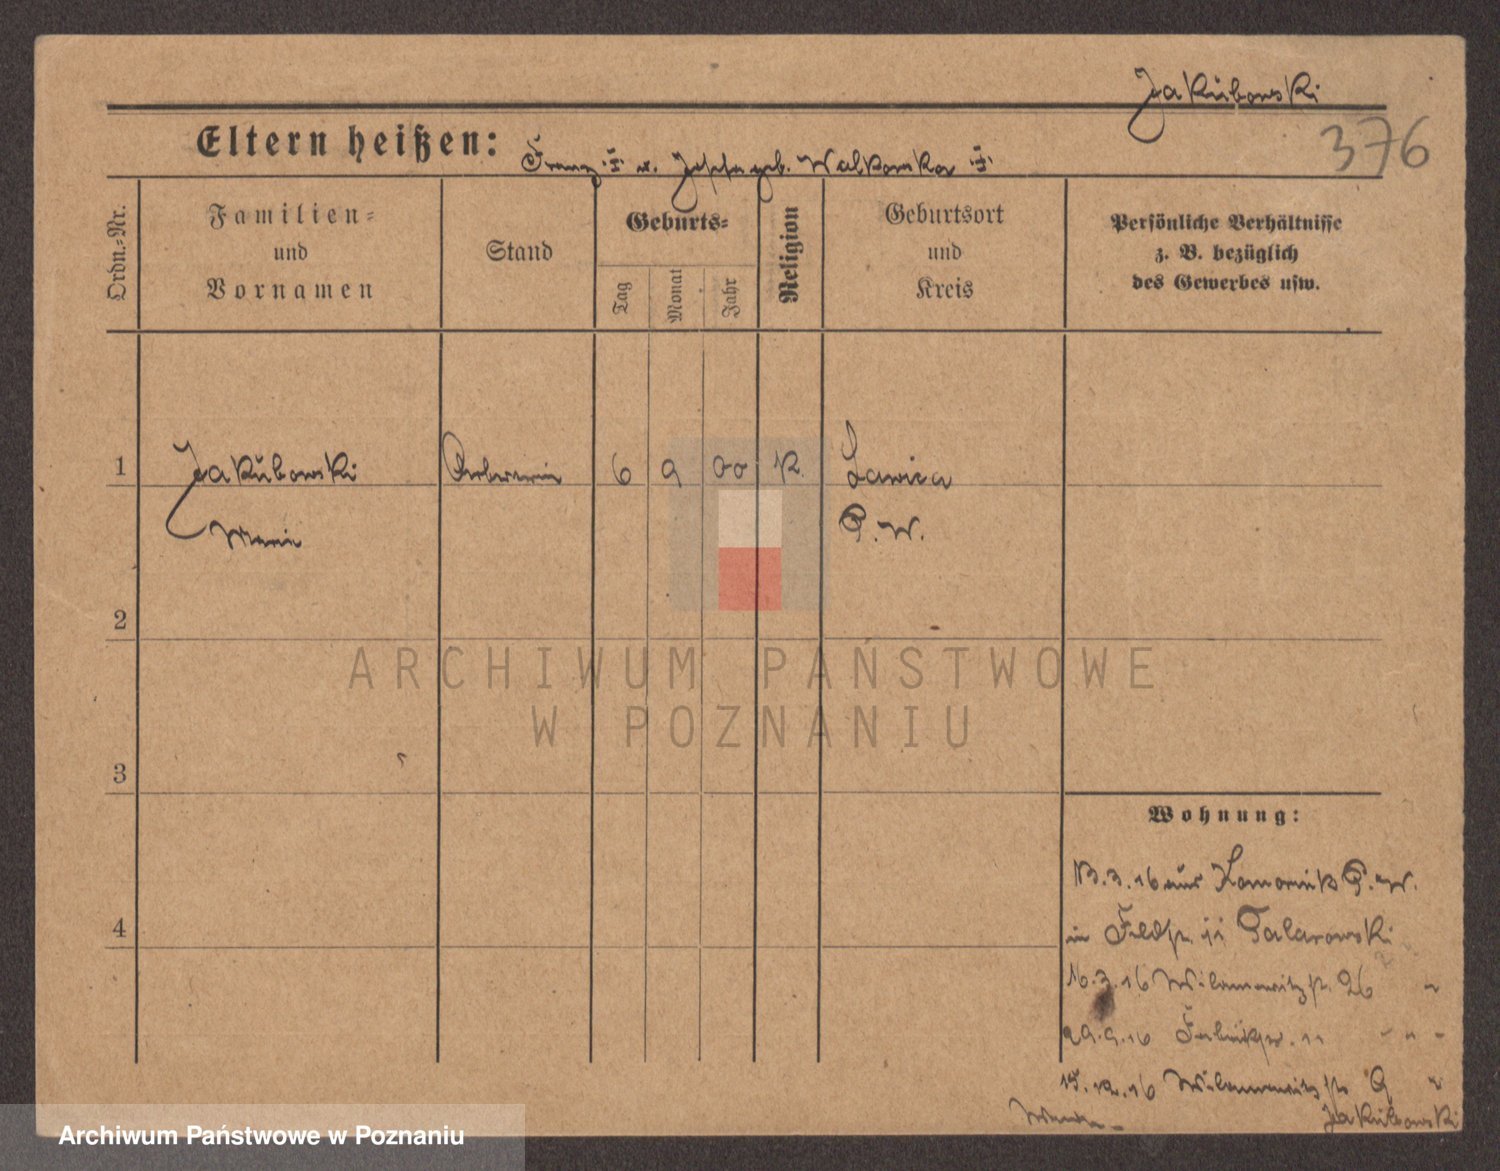 Jakubowski
376
Eltern heißen: Franz u. Josefa geb. Walkowska
Ordn.=Nr.
Familien=
und
Vornamen
Stand
Geburts=
Tag
Monat
Jahr
Religion
Geburtsort
und
Kreis
Persönliche Verhältnisse
z. B. bezüglich
des Gewerbes usw.
1 Jakubowski Arbeiterin 6 9 00 K. Lawica
P. W.
2
3
4
Wohnung:
13.3.16 aus Komornik P. W.
in Feldstr. 11
16.3.16 Wilamowitzstr. 26 "
29.9.16 11 " " "
15.12.16 Wilamowitzstr. 9 "
Jakubowski
ARCHIWUM PAŃSTWOWE
W POZNANIU
Archiwum Państwowe w Poznaniu